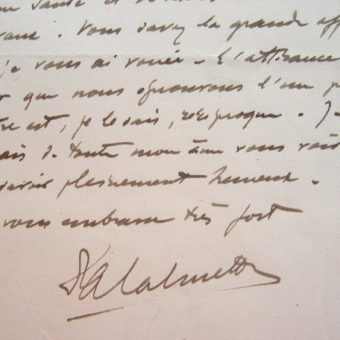 santé et
. Vous savez la grande aff
je vous ai vouée. L'attirance
que nous éprouvons l'un p
est, je le sais, réciproque. J
ais de toute mon âme vous voir
savoir pleinement heureux.
vous embrasse très fort